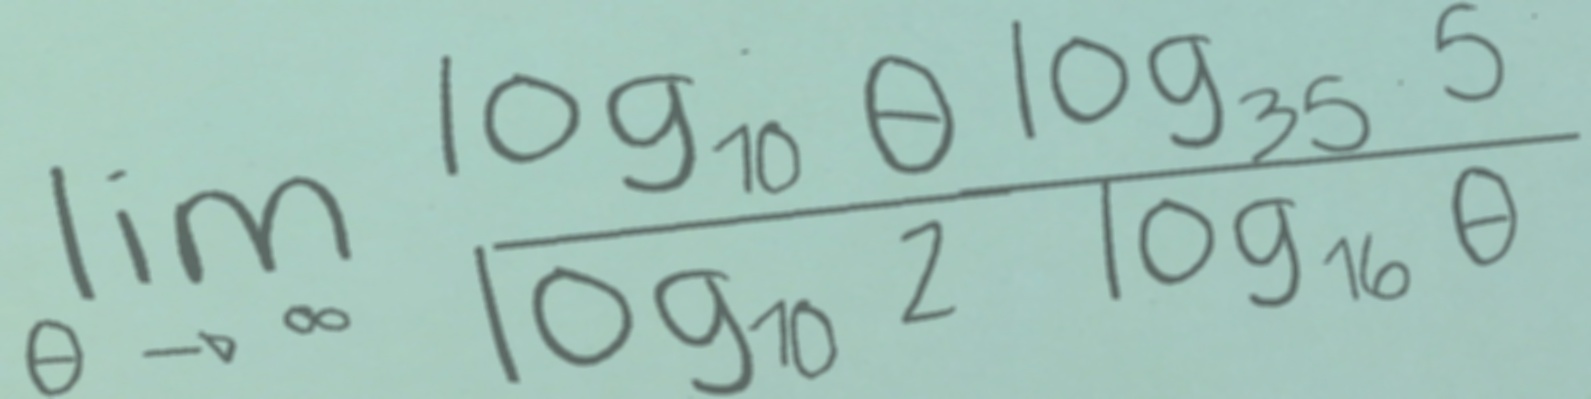 \lim_{\theta \to \infty} \frac{\log_{10} \theta \log_{35} 5}{\log_{10} 2 \log_{16} \theta}